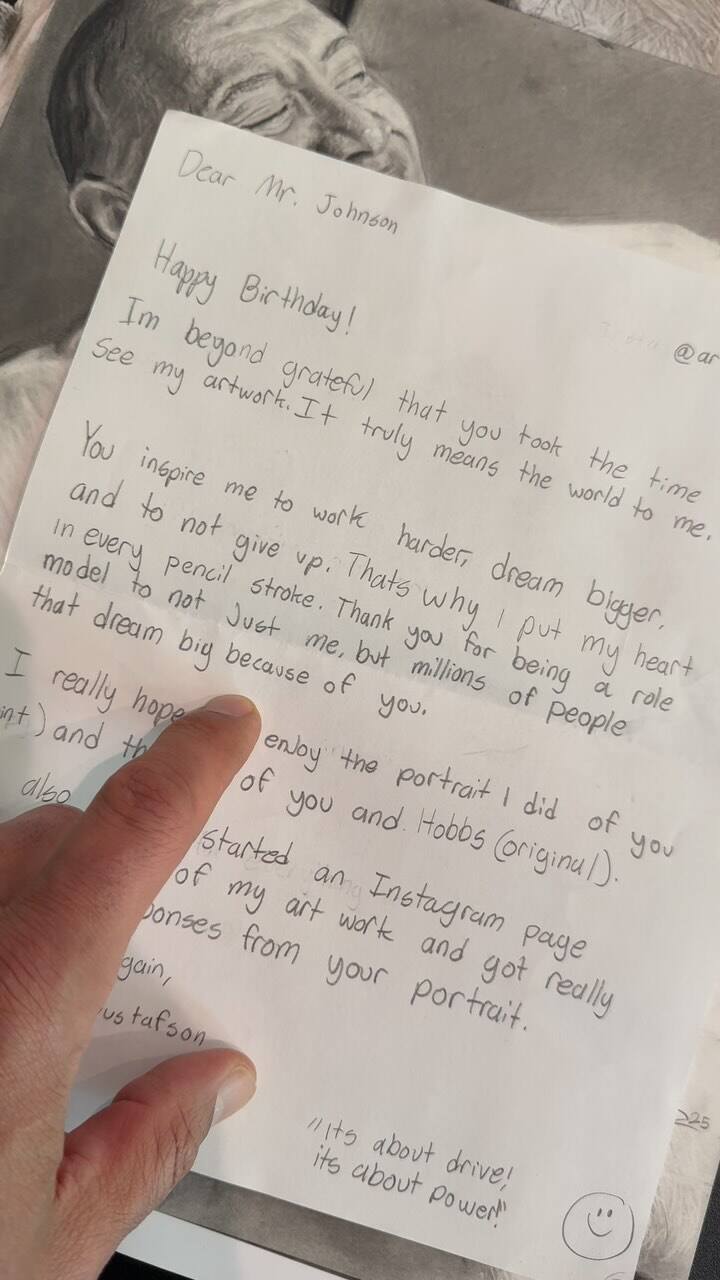 Dear Mr. Johnson
Happy Birthday!
@ar
Im beyond grateful that you took the time
see my artwork. It truly means the world to me.
You inspire me to work harder, dream bigger,
and to not give up. Thats why I put my heart
in every pencil stroke. Thank you for being a role
model to not Just me, but millions of people
that dream big because of you.
I really hope enjoy the portrait I did of you
int) and th of you and Hobbs (original).
also started an Instagram page
of my art work and got really
ponses from your portrait.
gain,
ustafson
"Its about drive!
its about power!"
225